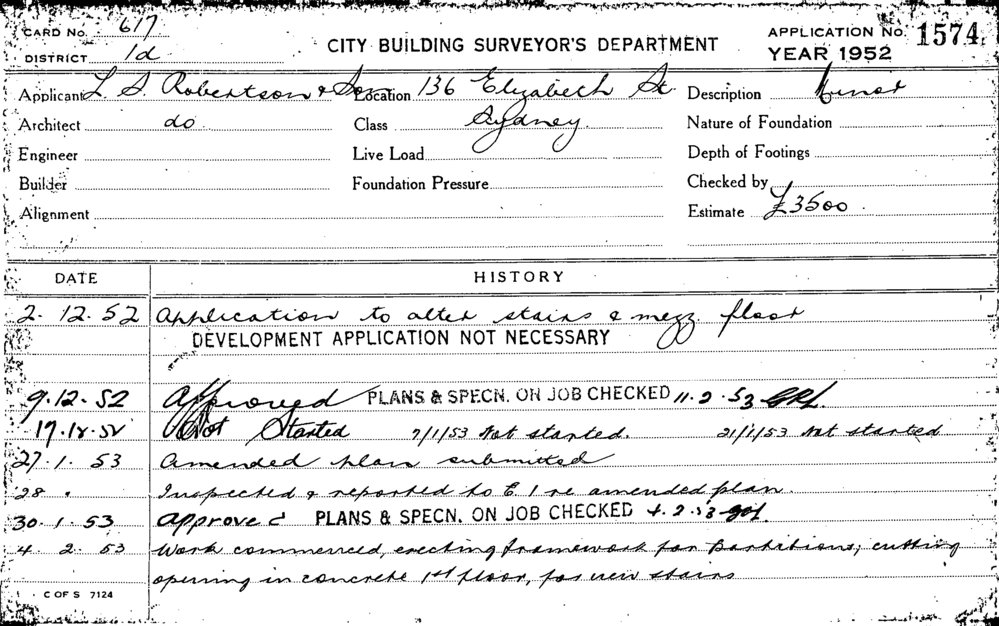 CARD No. 617
DISTRICT 1d
CITY BUILDING SURVEYOR'S DEPARTMENT
APPLICATION No. 1574
YEAR 1952
Applicant L. S. Robertson & Son Location 136 Elizabeth St. Description Minor
Architect do Class Sydney. Nature of Foundation
Engineer Live Load Depth of Footings
Builder Foundation Pressure Checked by
Alignment Estimate £3500.
DATE HISTORY
2. 12. 52 Application to alter stairs & mezz. floor
DEVELOPMENT APPLICATION NOT NECESSARY
9. 12. 52 Approved PLANS & SPECN. ON JOB CHECKED 11. 2. 53
Not Started 7/1/53 Not started. 21/1/53 Not started
27. 1. 53 Amended plan submitted
28 " Inspected & reported to E. 1 re amended plan.
30. 1. 53 Approved PLANS & SPECN. ON JOB CHECKED 4. 2. 53
4. 2. 53 Work commenced, erecting framework for partitions; cutting
opening in concrete 1st floor, for new stairs
C OF S 7124